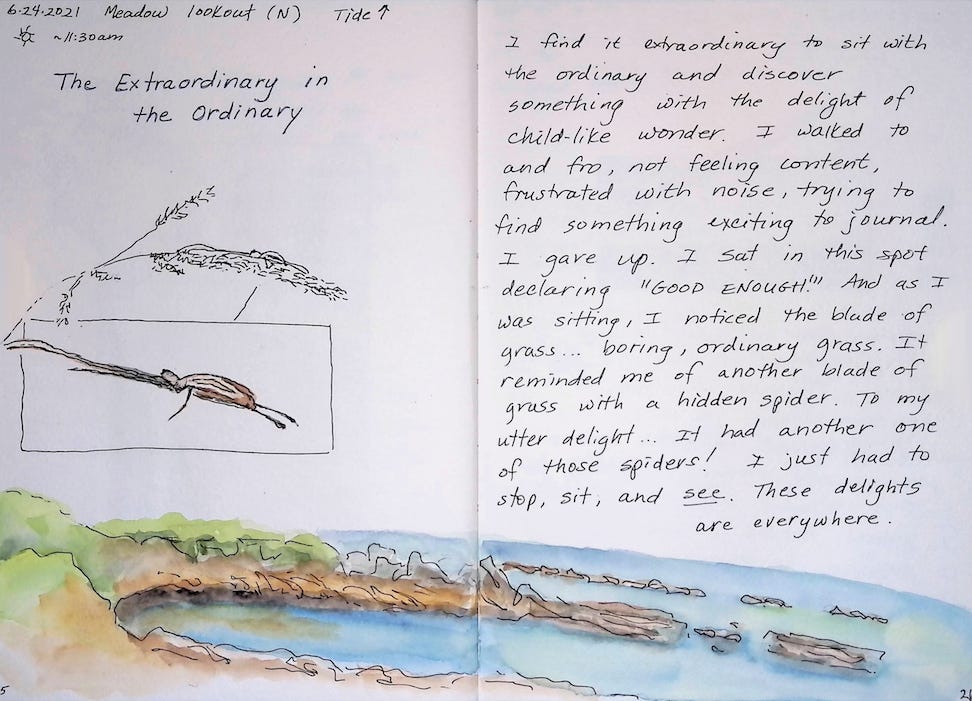 6.24.2021 Meadow lookout (N) Tide ↑
~11:30am
The Extraordinary in
the Ordinary
I find it extraordinary to sit with
the ordinary and discover
something with the delight of
child-like wonder. I walked to
and fro, not feeling content,
frustrated with noise, trying to
find something exciting to journal.
I gave up. I sat in this spot
declaring "GOOD ENOUGH!" And as I
was sitting, I noticed the blade of
grass... boring, ordinary grass. It
reminded me of another blade of
grass with a hidden spider. To my
utter delight... It had another one
of those spiders! I just had to
stop, sit, and see. These delights
are everywhere.